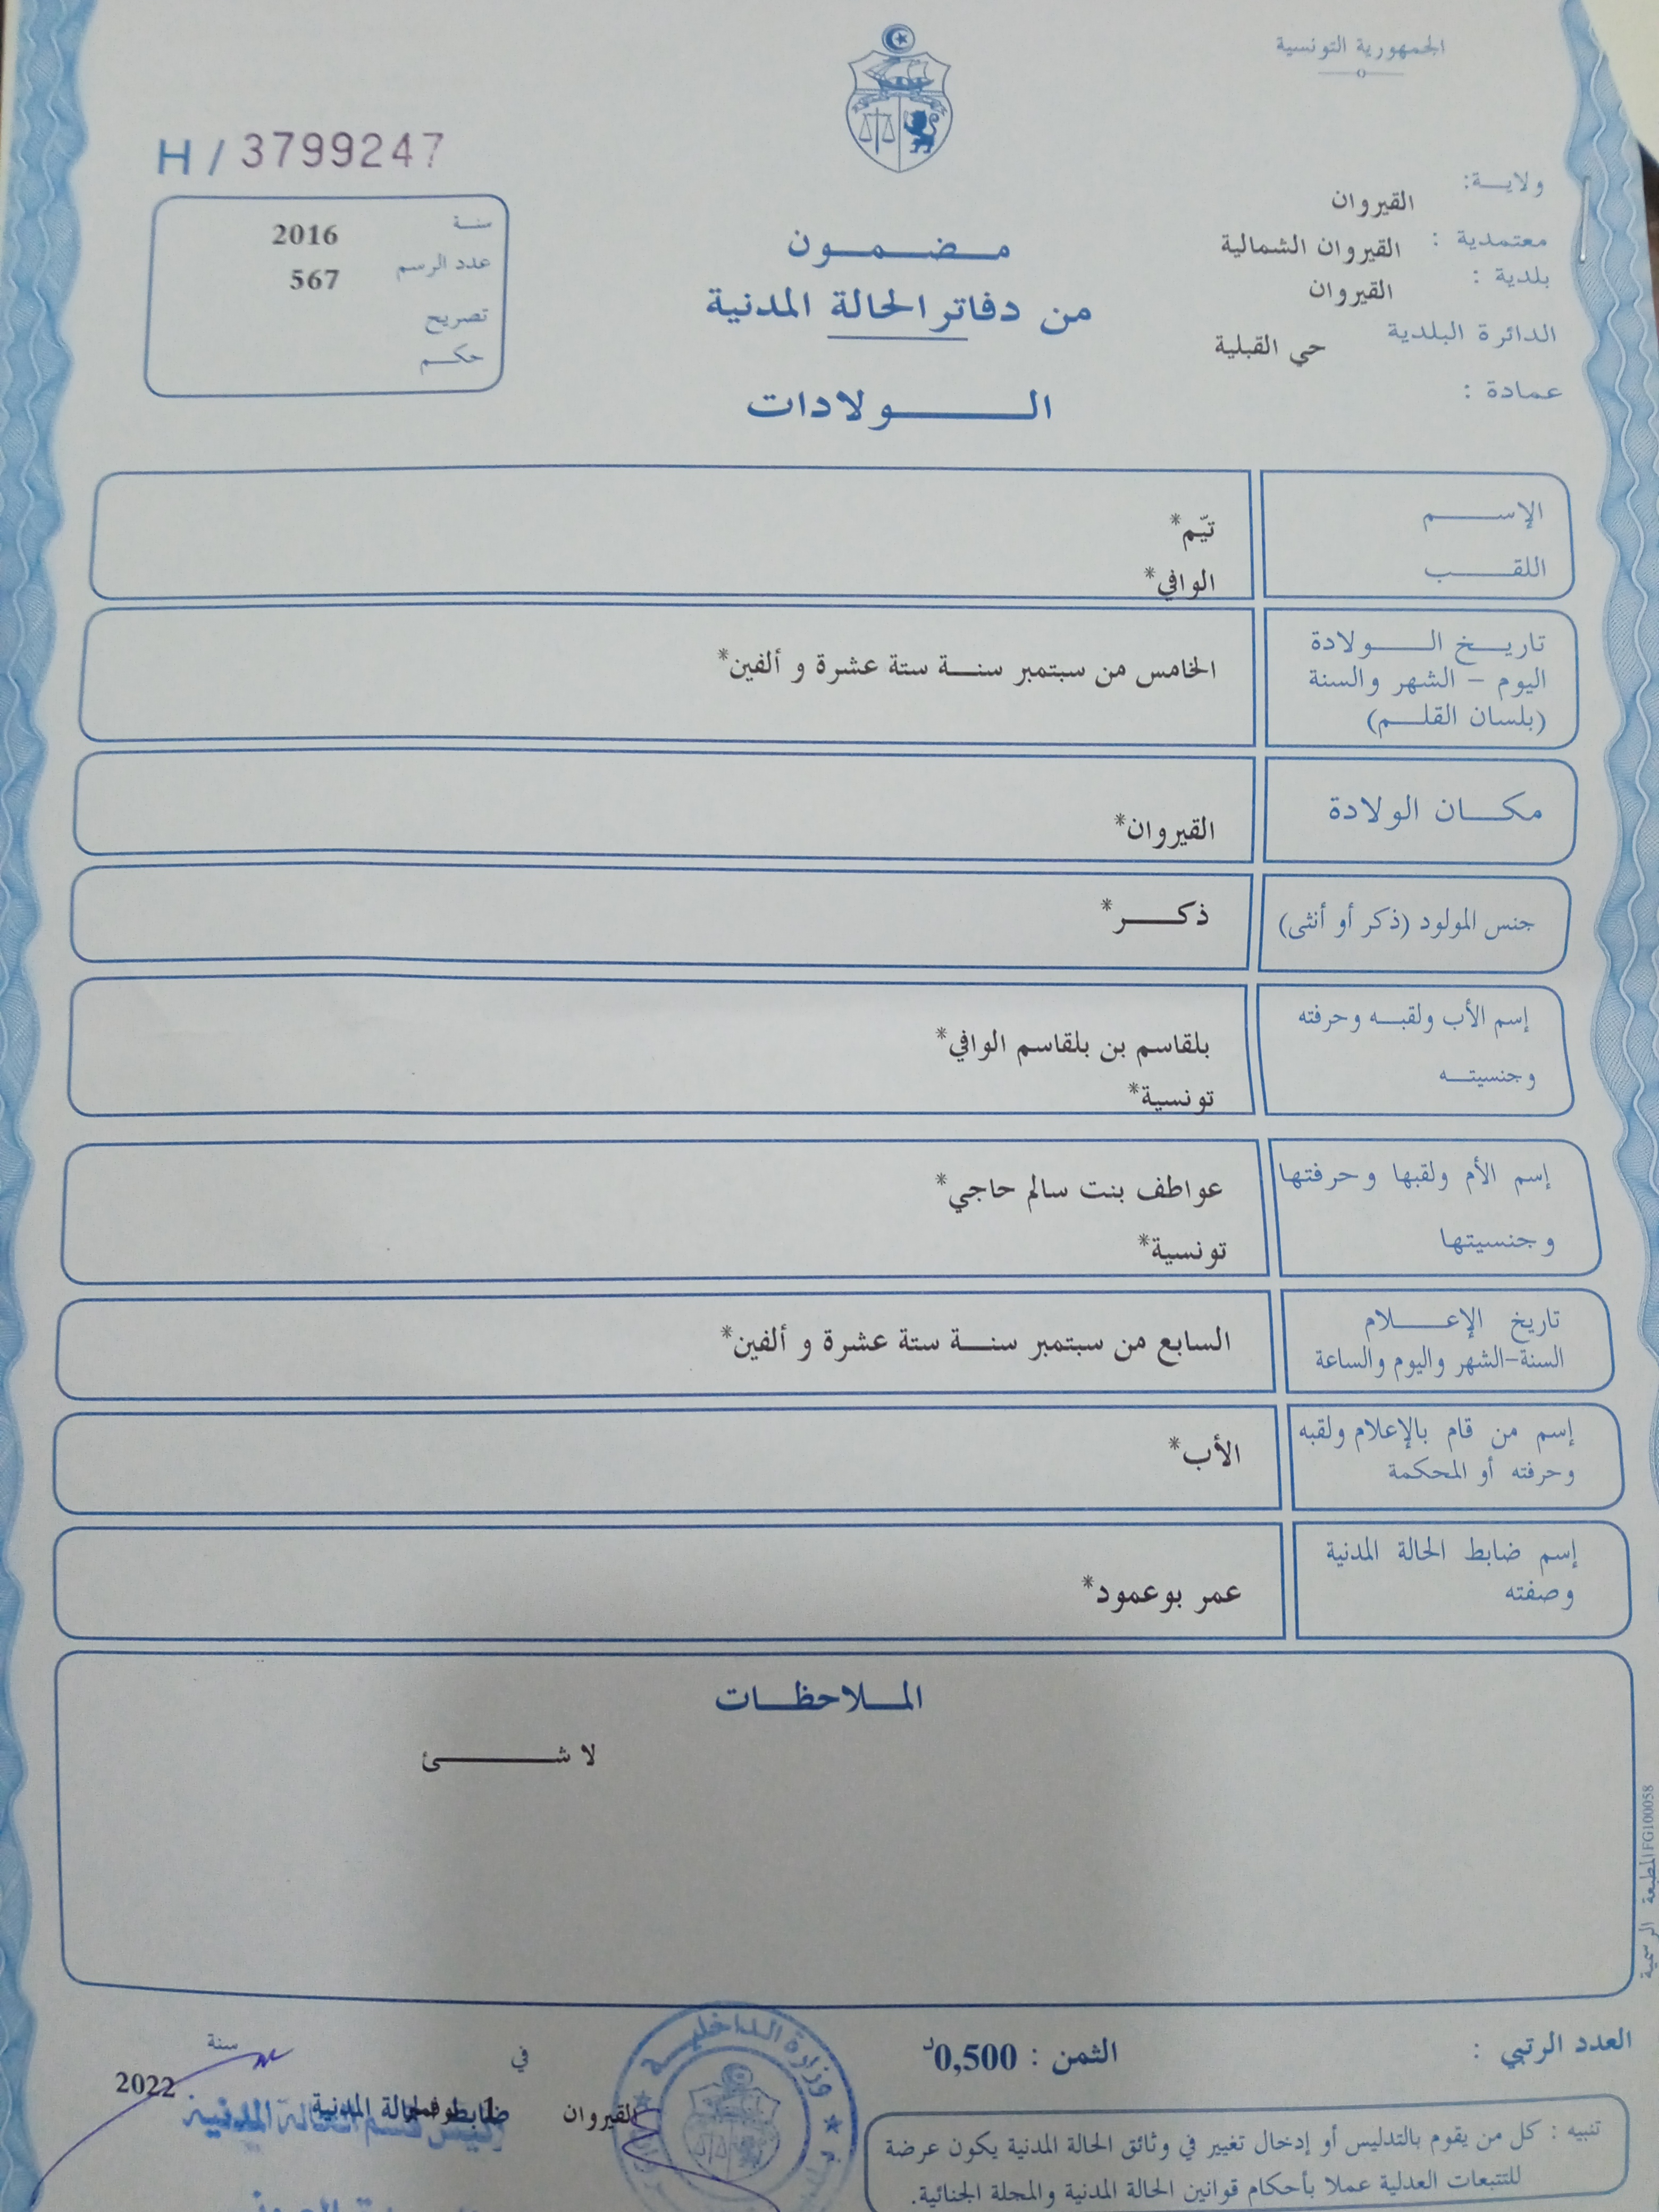 الجمهورية التونسية
H / 3799247
ولايــة: القيروان
معتمدية : القيروان الشمالية
بلدية : القيروان
الدائرة البلدية حي القبلية
عمادة :
سنــة 2016
عدد الرسم 567
تصريح
حكــم
مــضــمــون
من دفاتر الحالة المدنية
الــــولادات
الإســــم تيّم*
اللقــــب الوافي*
تاريــخ الــــولادة
اليوم - الشهر والسنة
(بلسان القلــم)
الخامس من سبتمبر سنــة ستة عشرة و ألفين*
مكــان الولادة القيروان*
جنس المولود (ذكر أو أنثى) ذكــــر*
إسم الأب ولقبــه وحرفته
وجنسيتــه
بلقاسم بن بلقاسم الوافي*
تونسية*
إسم الأم ولقبها وحرفتها
وجنسيتها
عواطف بنت سالم حاجي*
تونسية*
تاريخ الإعــــلام
السنة-الشهر واليوم والساعة
السابع من سبتمبر سنــة ستة عشرة و ألفين*
إسم من قام بالإعلام ولقبه
وحرفته أو المحكمة
الأب*
إسم ضابط الحالة المدنية
وصفته
عمر بوعمود*
المــلاحظــات
لا شــــــئ
المطبعة الرسمية FG100058
العدد الرتبي :
الثمن : 0,500د
في
سنة
2022
القيروان
وزارة الداخليــة
تنبيه : كل من يقوم بالتدليس أو إدخال تغيير في وثائق الحالة المدنية يكون عرضة
للتتبعات العدلية عملا بأحكام قوانين الحالة المدنية والمجلة الجنائية.